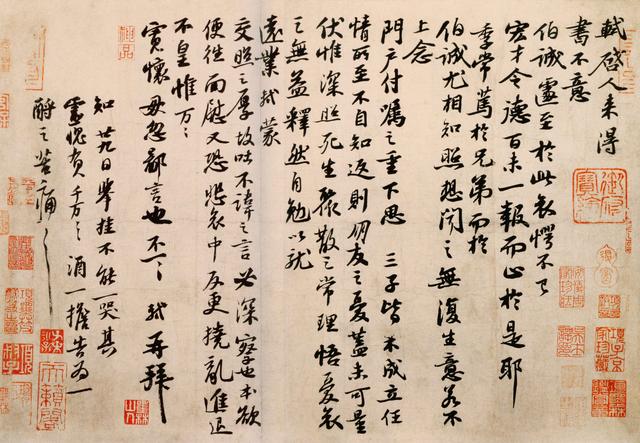 軾啓人来得
書不意
伯誠遽至於此哀愕不已
宏才令德百未一報而止於是耶
季常篤於兄弟而於
伯誠尤相知照想聞之無復生意若不
上念
門户付囑之重下思三子皆未成立任
情所至不自知返則朋友之憂蓋未可量
伏惟深照死生聚散之常理悟憂哀
之無益釋然自勉以就
遠業軾蒙
交照之厚故吐不諱之言必深察也本欲
便往面慰又恐悲哀中反更撓亂進退
不皇惟万万
寬懷毋忽鄙言也不一一軾再拜
知廿九日舉挂不能一哭其
靈愧負千万千万酒一擔告為一
酹之苦痛苦痛